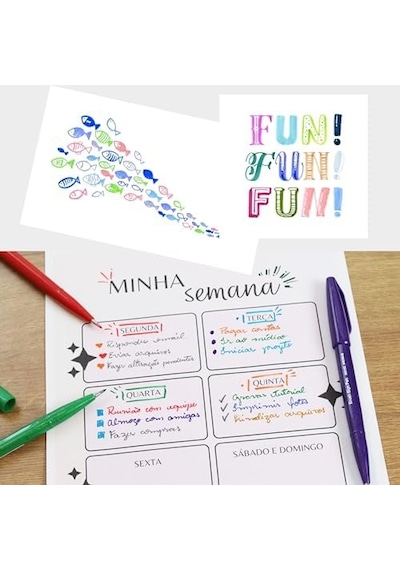 FUN!
FUN!
FUN!
MINHA
semana
SEGUNDA
Enviar arquivos
Fazer alteração pendentes
TERÇA
Pagar contas
Ir ao médico
Iniciar projeto
QUARTA
Reunião com equipe
Almoço com amigas
Fazer compras
QUINTA
Aprovar tutorial
Imprimir fotos
Finalizar arquivos
SEXTA
SÁBADO E DOMINGO